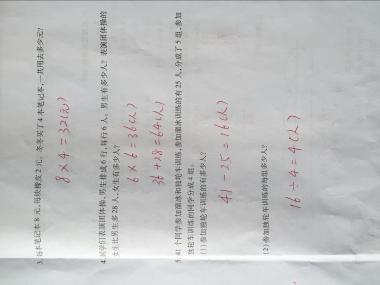 3. 每本笔记本8元,每块橡皮2元。冬冬买了4本笔记本,一共用去多少元?
8×4=32(元)
4. 同学们表演团体操。男生排成6行,每行6人。男生有多少人?表演团体操的
女生比男生多28人,女生有多少人?
6×6=36(人)
36+28=64(人)
5. 41个同学参加溜冰和独轮车训练,参加溜冰训练的有25人,分成了5组,参加
独轮车训练的同学分成4组。
(1)参加独轮车训练的有多少人?
41-25=16(人)
(2)参加独轮车训练的每组多少人?
16÷4=4(人)